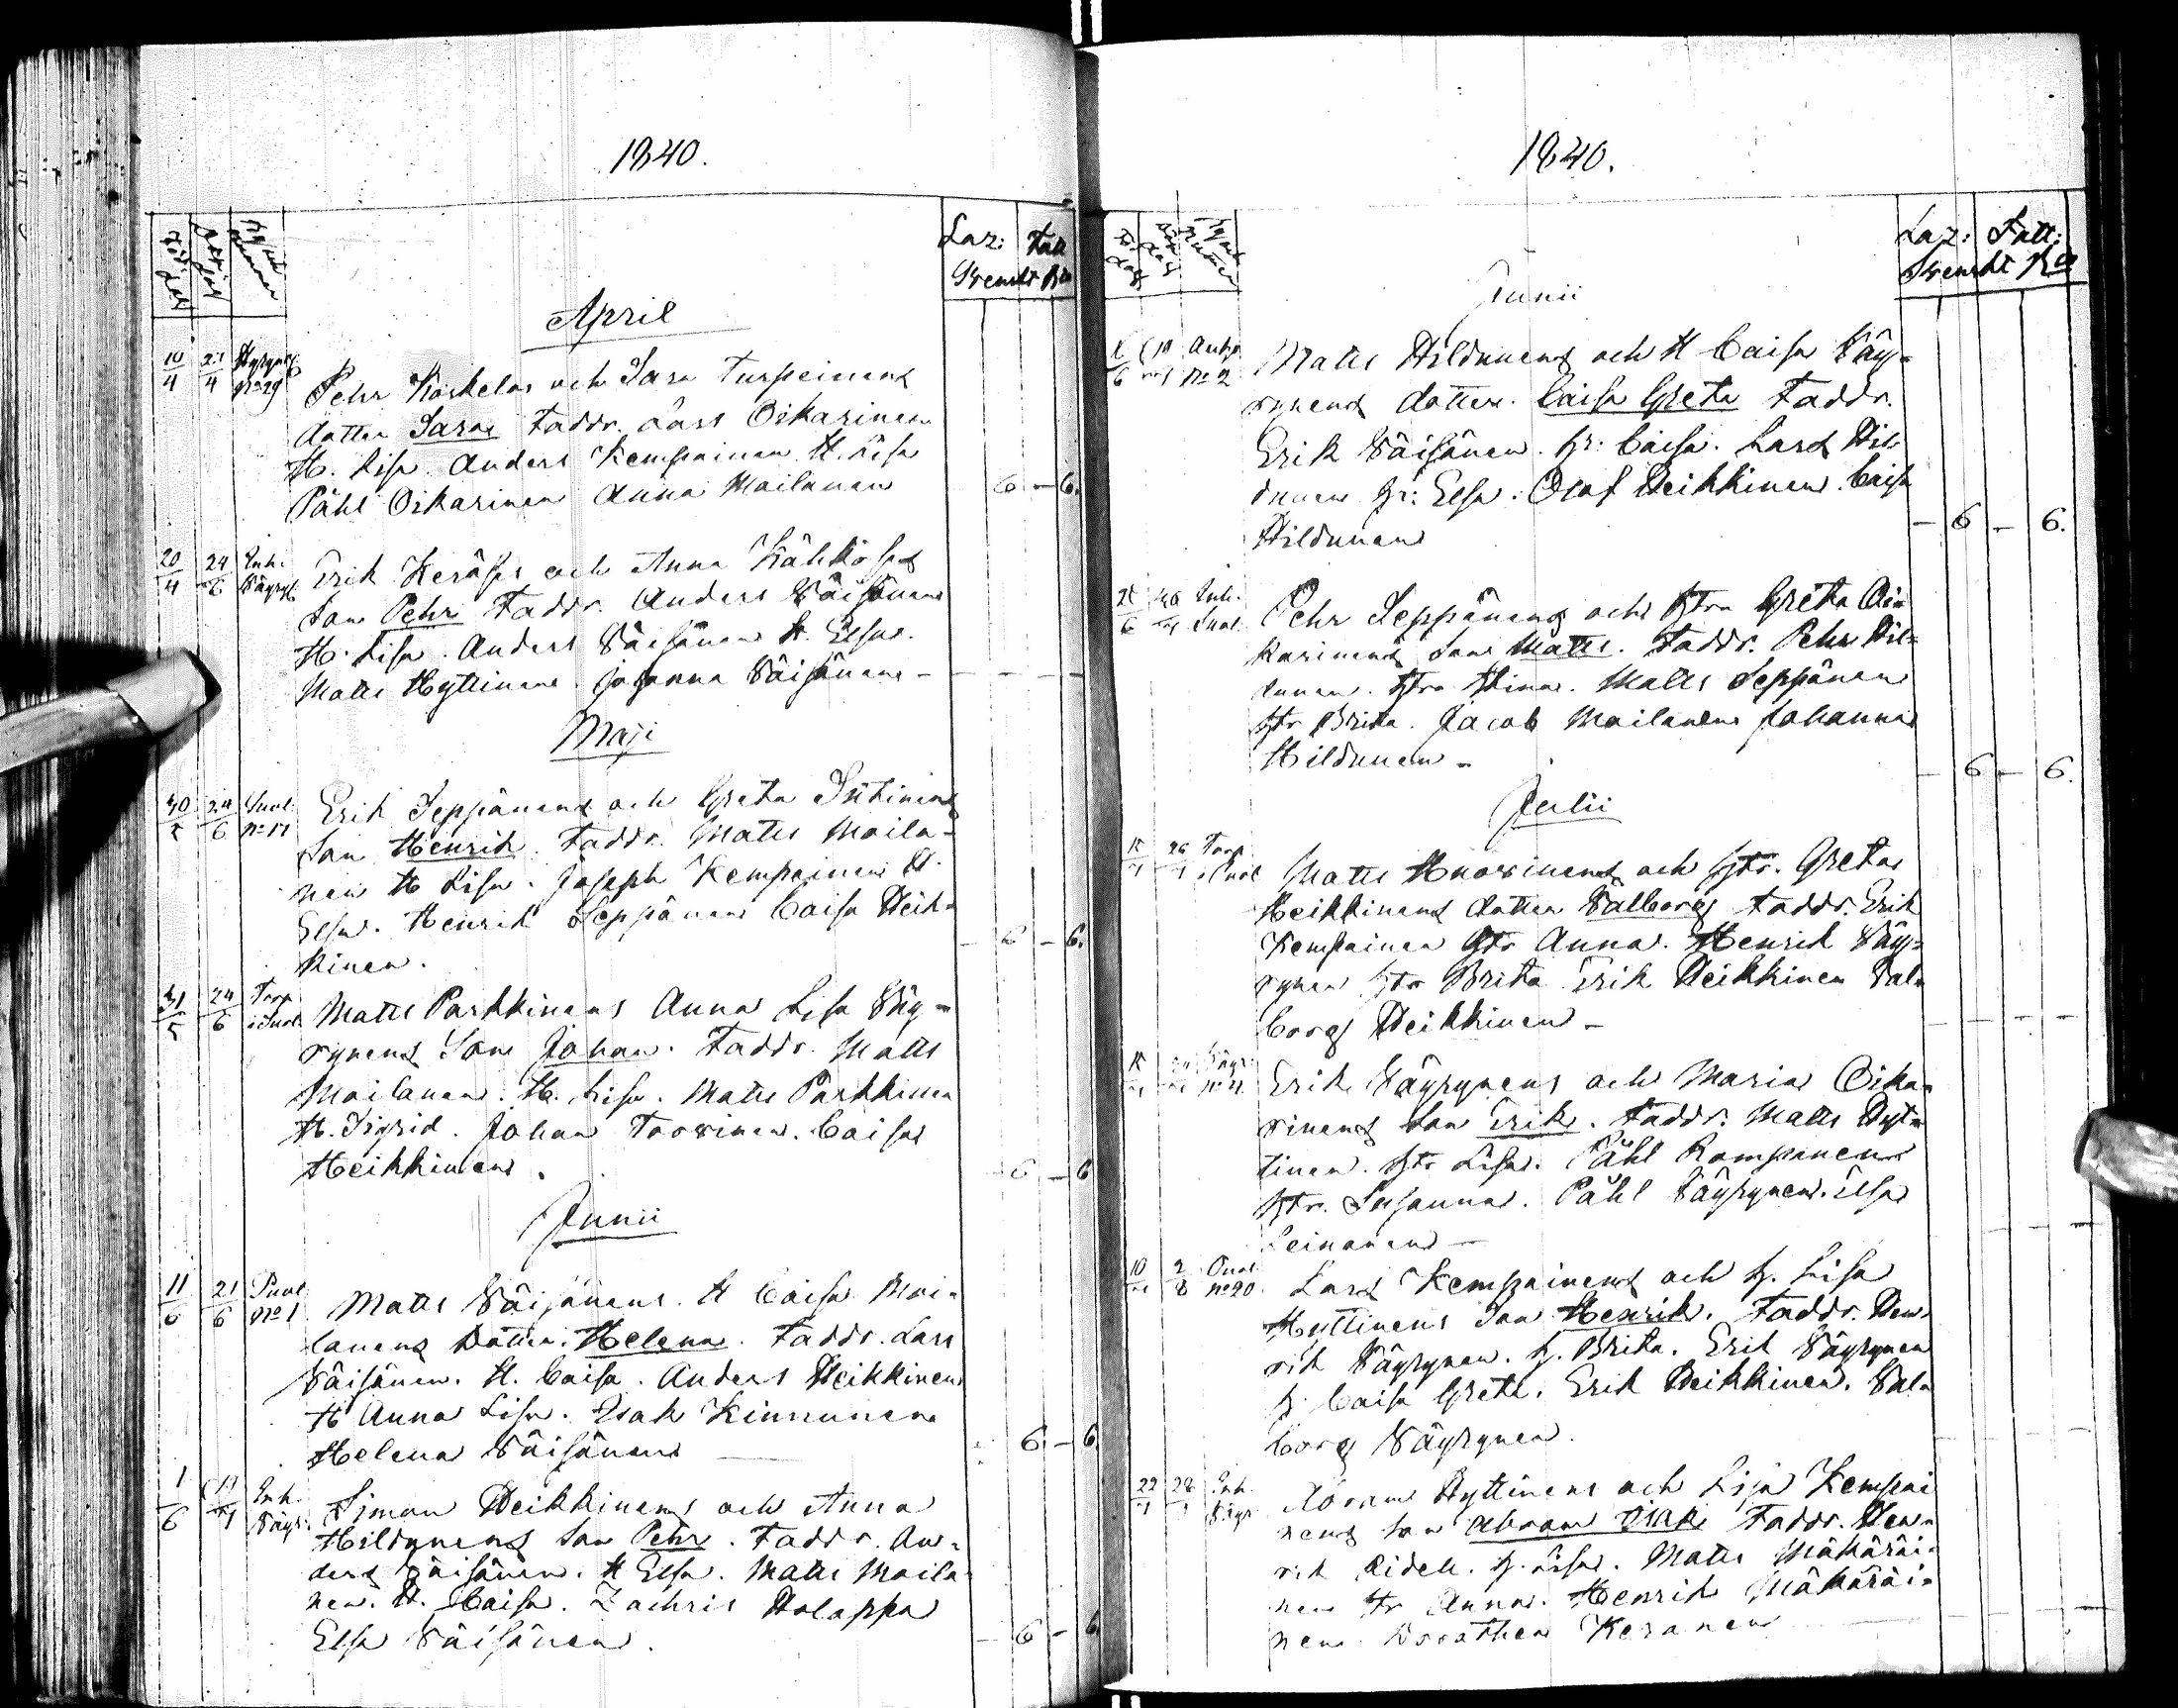 1840.
Laz: Fatt
Svenskt Rco
April
10/4 24/4 Hyryns. No 29 Pehr Koskelos och Sara Turpeinens
dotter Sara Faddr. Lars Oikarinen
H. Lisa. Anders Kempainen H. Lisa
Påhl Oikarinen Anna Moilanen
6 - 6.
20/4 24/6 Inh. Väyryl. Erik Keräses och Anna Kähkös
Son Pehr Faddr. Anders Väisänen
H. Lisa. Anders Väisänen H. Elsa.
Matts Hyttinen. Johanna Väisänen -
Maji
30/5 24/6 Suol. No 17 Erik Seppänens och Greta
Son Henrik. Faddr. Matts Moila-
nen H Lisa. Joseph Kempainen H.
Elsa. Henrik Seppänen Caisa Heik-
kinen.
- 6 - 6.
31/5 24/6 Torp i Suol Matts Parkkinens Anna Lisa Väy-
rynens Son Johan. Faddr. Matts
Moilanen. H. Lisa. Matts Parkkinen
H. Sigrid. Johan Toorinen. Caisa
Heikkinen.
- 6 - 6
Junii
11/6 21/6 Puol No 1 Matts Väisänens. H Caisa Moi-
lanens Dotter. Helena. Faddr. Lars
Väisänen. H. Caisa. Anders Heikkinen
H Anna Lisa. Isak Kinnunen
Helena Väisänen
6 - 6.
1/6 Inh. Väyr. Simon Heikkinens och Anna
Hildunens Son Pehr. Faddr. An-
ders Väisänen. H Elsa. Matts Moila-
nen. H. Caisa. Zachris Holappa
Elsa Väisänen.
- 6 - 6
1840.
Laz: Fatt:
Svenskt Rco
Junii
No 2 Matts Hildunens och H Caisa Väy-
rynens dotter. Caisa Greta Faddr.
Erik Väisänen. H: Caisa. Lars Hil-
dunen H: Elsa. Olof Heikkinen. Caisa
Hildunen
- 6 - 6.
Inh. Suol. Pehr Seppänens och Hstr Greta Oi-
karinens Son Matts. Faddr. Pehr Hil-
dunen. Hstr Stina. Matts Seppänen
Hstr Brita. Jacob Moilanen Johanna
Hildunen -
- 6 - 6.
Julii
Torp i Suol Matts Huovinens och Hstr. Greta
Heikkinens dotter Valborg Faddr. Erik
Kempainen Hstr Anna. Henrik Väy-
rynen Hstr Brita Erik Heikkinen Val-
borg Heikkinen -
Erik Väyrynens och Maria Oika-
rinens Son Erik. Faddr. Matts Hyt-
tinen. Hstr Lisa. Påhl Romppanen
Hstr. Susanna. Påhl Väyrynen. Elsa
Leinonen -
10/7 2/8 No 20. Lars Kempainens och H. Lisa
Hyttinens Son Henrik. Faddr. Hen-
rik Väyrynen. H. Brita. Erik Väyrynen
H. Caisa Greta. Erik Heikkinen. Val-
borg Väyrynen.
22/7 Inh. Väyr Abram Hyttinens och Lisa Kempai
nens Son Abram Isak Faddr. Hen-
rik Ridell. H. Lisa. Matts Mäkäräi-
nen Hr Anna. Henrik Mäkäräi-
nen. Dorothea Keranen